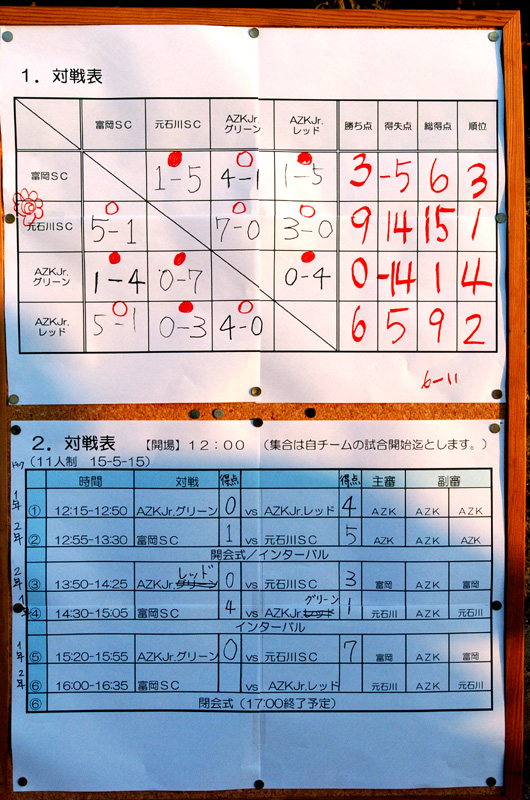 1．対戦表
富岡ＳＣ 元石川ＳＣ AZKJr.グリーン AZKJr.レッド 勝ち点 得失点 総得点 順位
富岡ＳＣ 1-5 4-1 1-5 3 -5 6 3
元石川ＳＣ 5-1 7-0 3-0 9 14 15 1
AZKJr.グリーン 1-4 0-7 0-4 0 -14 1 4
AZKJr.レッド 5-1 0-3 4-0 6 5 9 2
6-11
2．対戦表 【開場】12：00 （集合は自チームの試合開始迄とします。）
（11人制 15-5-15）
時間 対戦 得点 得点 主審 副審
1年 ① 12:15-12:50 AZKJr.グリーン 0 vs AZKJr.レッド 4 AZK AZK AZK
2年 ② 12:55-13:30 富岡ＳＣ 1 vs 元石川ＳＣ 5 AZK AZK AZK
開会式／インターバル
2年 ③ 13:50-14:25 AZKJr.グリーン レッド 0 vs 元石川ＳＣ 3 富岡 AZK 富岡
1年 ④ 14:30-15:05 富岡ＳＣ 4 vs AZKJr.レッド グリーン 1 元石川 AZK 元石川
インターバル
1年 ⑤ 15:20-15:55 AZKJr.グリーン 0 vs 元石川ＳＣ 7 富岡 AZK 富岡
2年 ⑥ 16:00-16:35 富岡ＳＣ vs AZKJr.レッド 元石川 AZK 元石川
⑥ 閉会式（17:00終了予定）